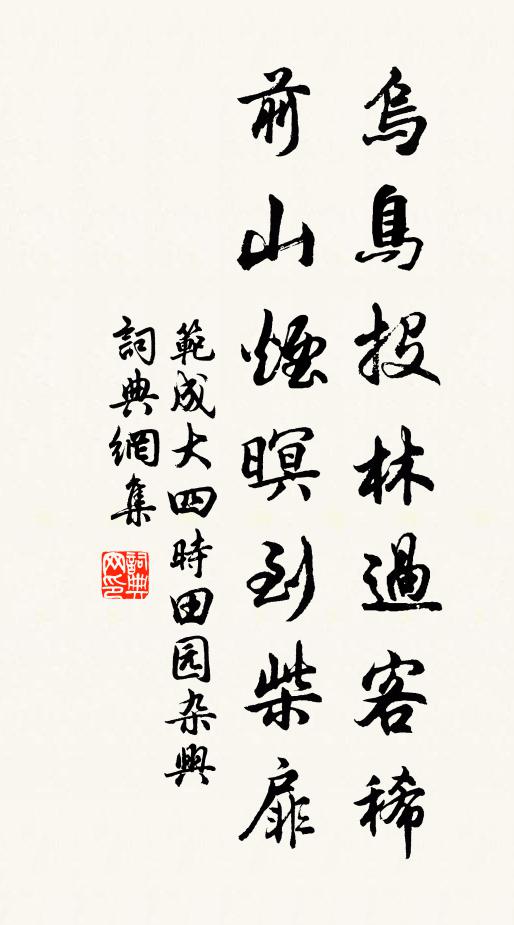 烏鳥投林過客稀
前山煙暝到柴扉
範成大四時田园杂興
詞典網集
詞典
网印